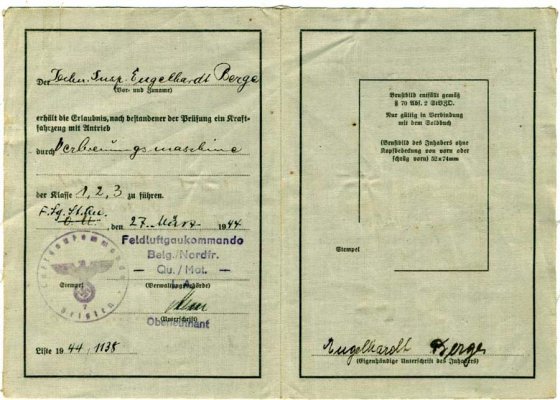 Der Techn. Insp. Engelhardt Berge
(Vor- und Zuname)
erhält die Erlaubnis, nach bestandener der Prüfung ein Kraft-
fahrzeug mit Antrieb
durch Verbrennungsmaschine
der Klasse 1, 2, 3 zu führen.
, den 27. März 1944
Feldluftgaukommando
Belg./Nordfr.
— Qu./Mot. —
I. A.
Stempel (Verwaltungsbehörde)
(Unterschrift)
Oberleutnant
Liste 1944, 1138
Brustbild entfällt gemäß
§ 70 Abs. 2 StVZO.
Nur gültig in Verbindung
mit dem Soldbuch
(Brustbild des Inhabers ohne
Kopfbedeckung von vorn oder
schräg vorn) 52x74mm
Stempel
Engelhardt Berge
(Eigenhändige Unterschrift des Inhabers)